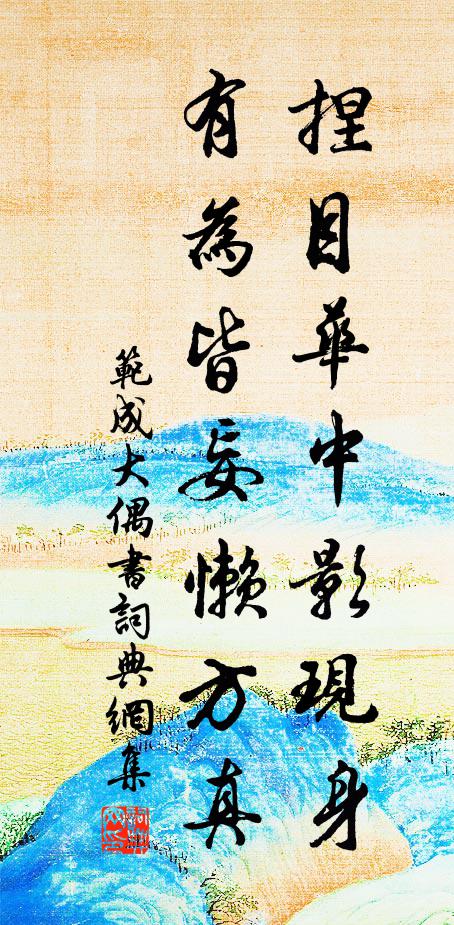 捏目華中影現身
有為皆妄懶方真
範成大偶書詞典網集